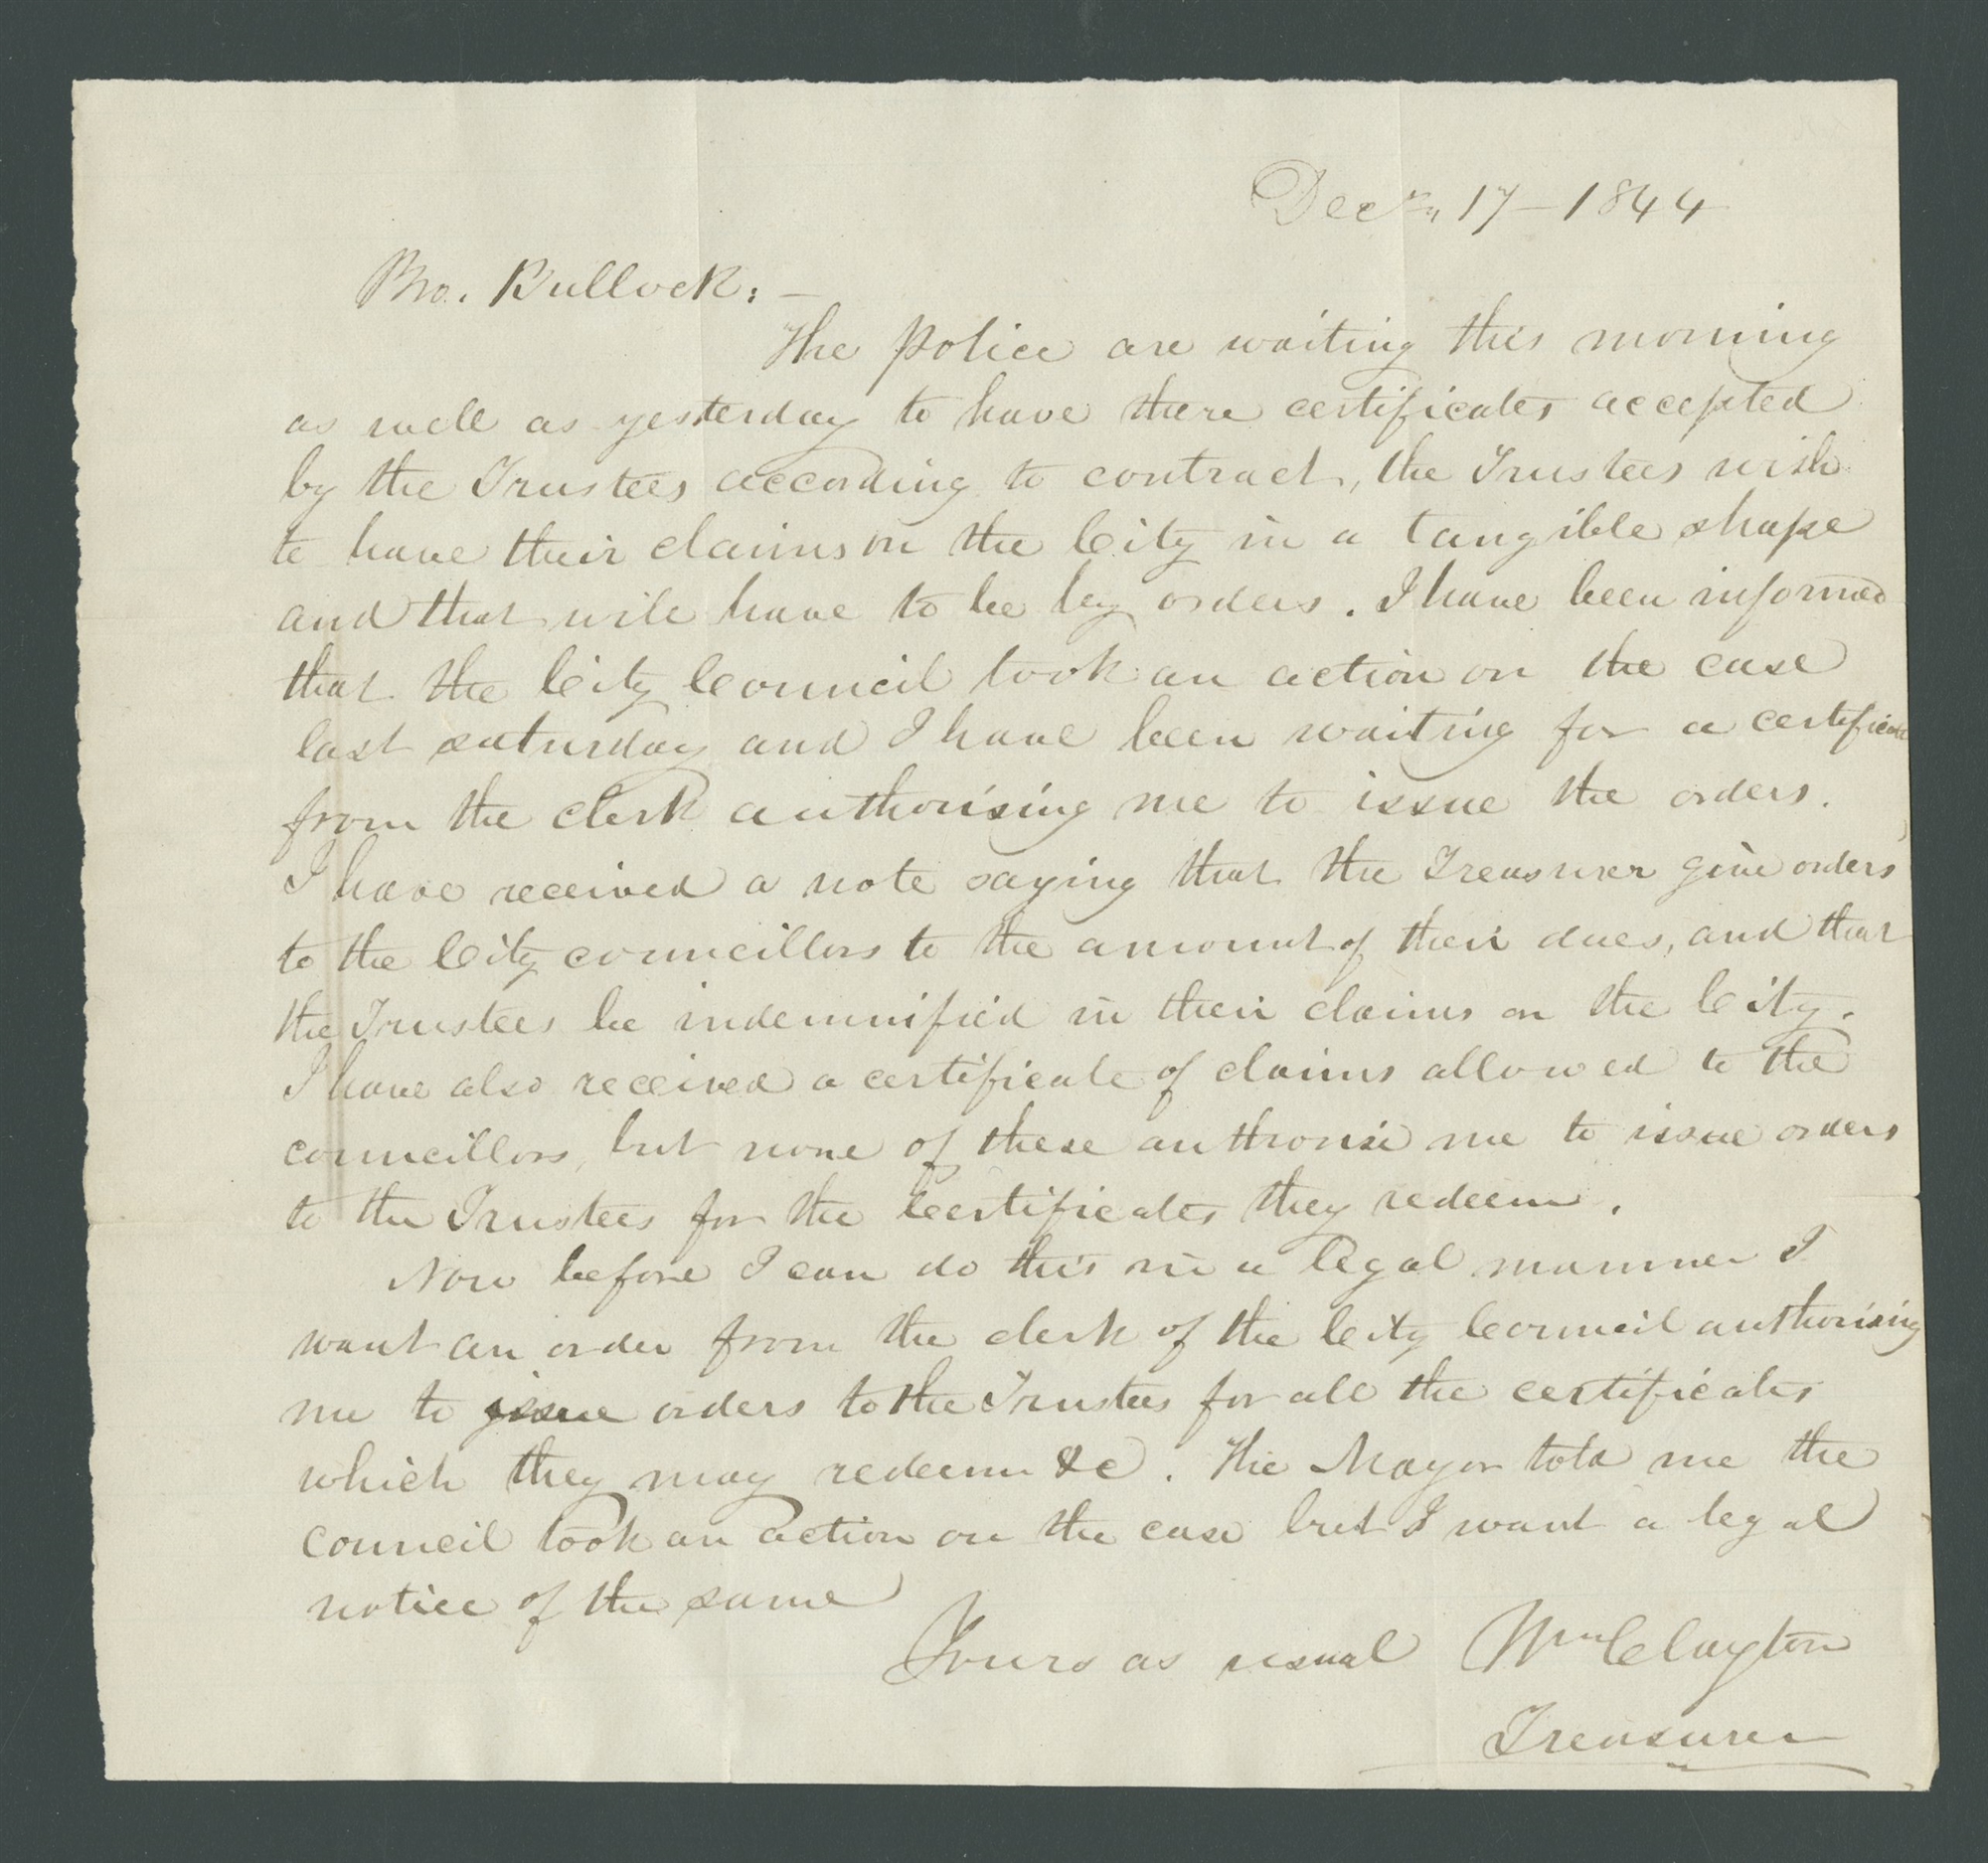 Decr. 17 – 1844
Bro. Bullock: –
The Police are waiting this morning
as well as yesterday to have there certificates accepted
by the Trustees according to contract, the Trustees wish
to have their claims on the City in a tangible shape
and that will have to be by orders. I have been informed
that the City Council took an action on the case
last saturday and I have been waiting for a certificate
from the clerk authorising me to issue the orders.
I have received a note saying that the Treasurer give orders
to the City councillors to the amount of their dues, and that
the Trustees be indemnified in their claims on the City.
I have also received a certificate of claims allowed to the
councillors, but none of these authorise me to issue orders
to the Trustees for the Certificates they redeem.
Now before I can do this in a legal manner I
want an order from the clerk of the City Council authorising
me to issue orders to the Trustees for all the certificates
which they may redeem &c. The Mayor told me the
council took an action on the case but I want a legal
notice of the same
Yours as usual Wm Clayton
Treasurer